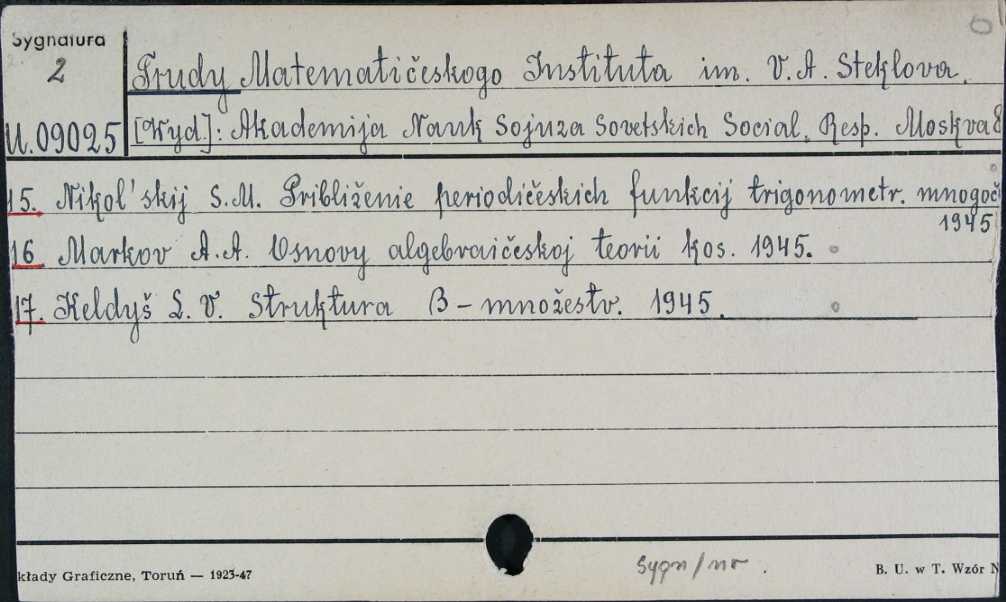 Sygnatura
2
U.09025
Trudy Matematičeskogo Instituta im. V.A. Steklova.
[Wyd]: Akademija Nauk Sojuza Sovetskich Social. Resp. Moskva
15. Nikol'skij S.M. Približenie periodičeskich funkcij trigonometr. mnogoč
1945
16 Markov A.A. Osnovy algebraičeskoj teorii kos. 1945.
17. Keldyš L.V. Struktura B-množestv. 1945.
kłady Graficzne, Toruń — 1923-47
sygn/nr.
B. U. w T. Wzór N